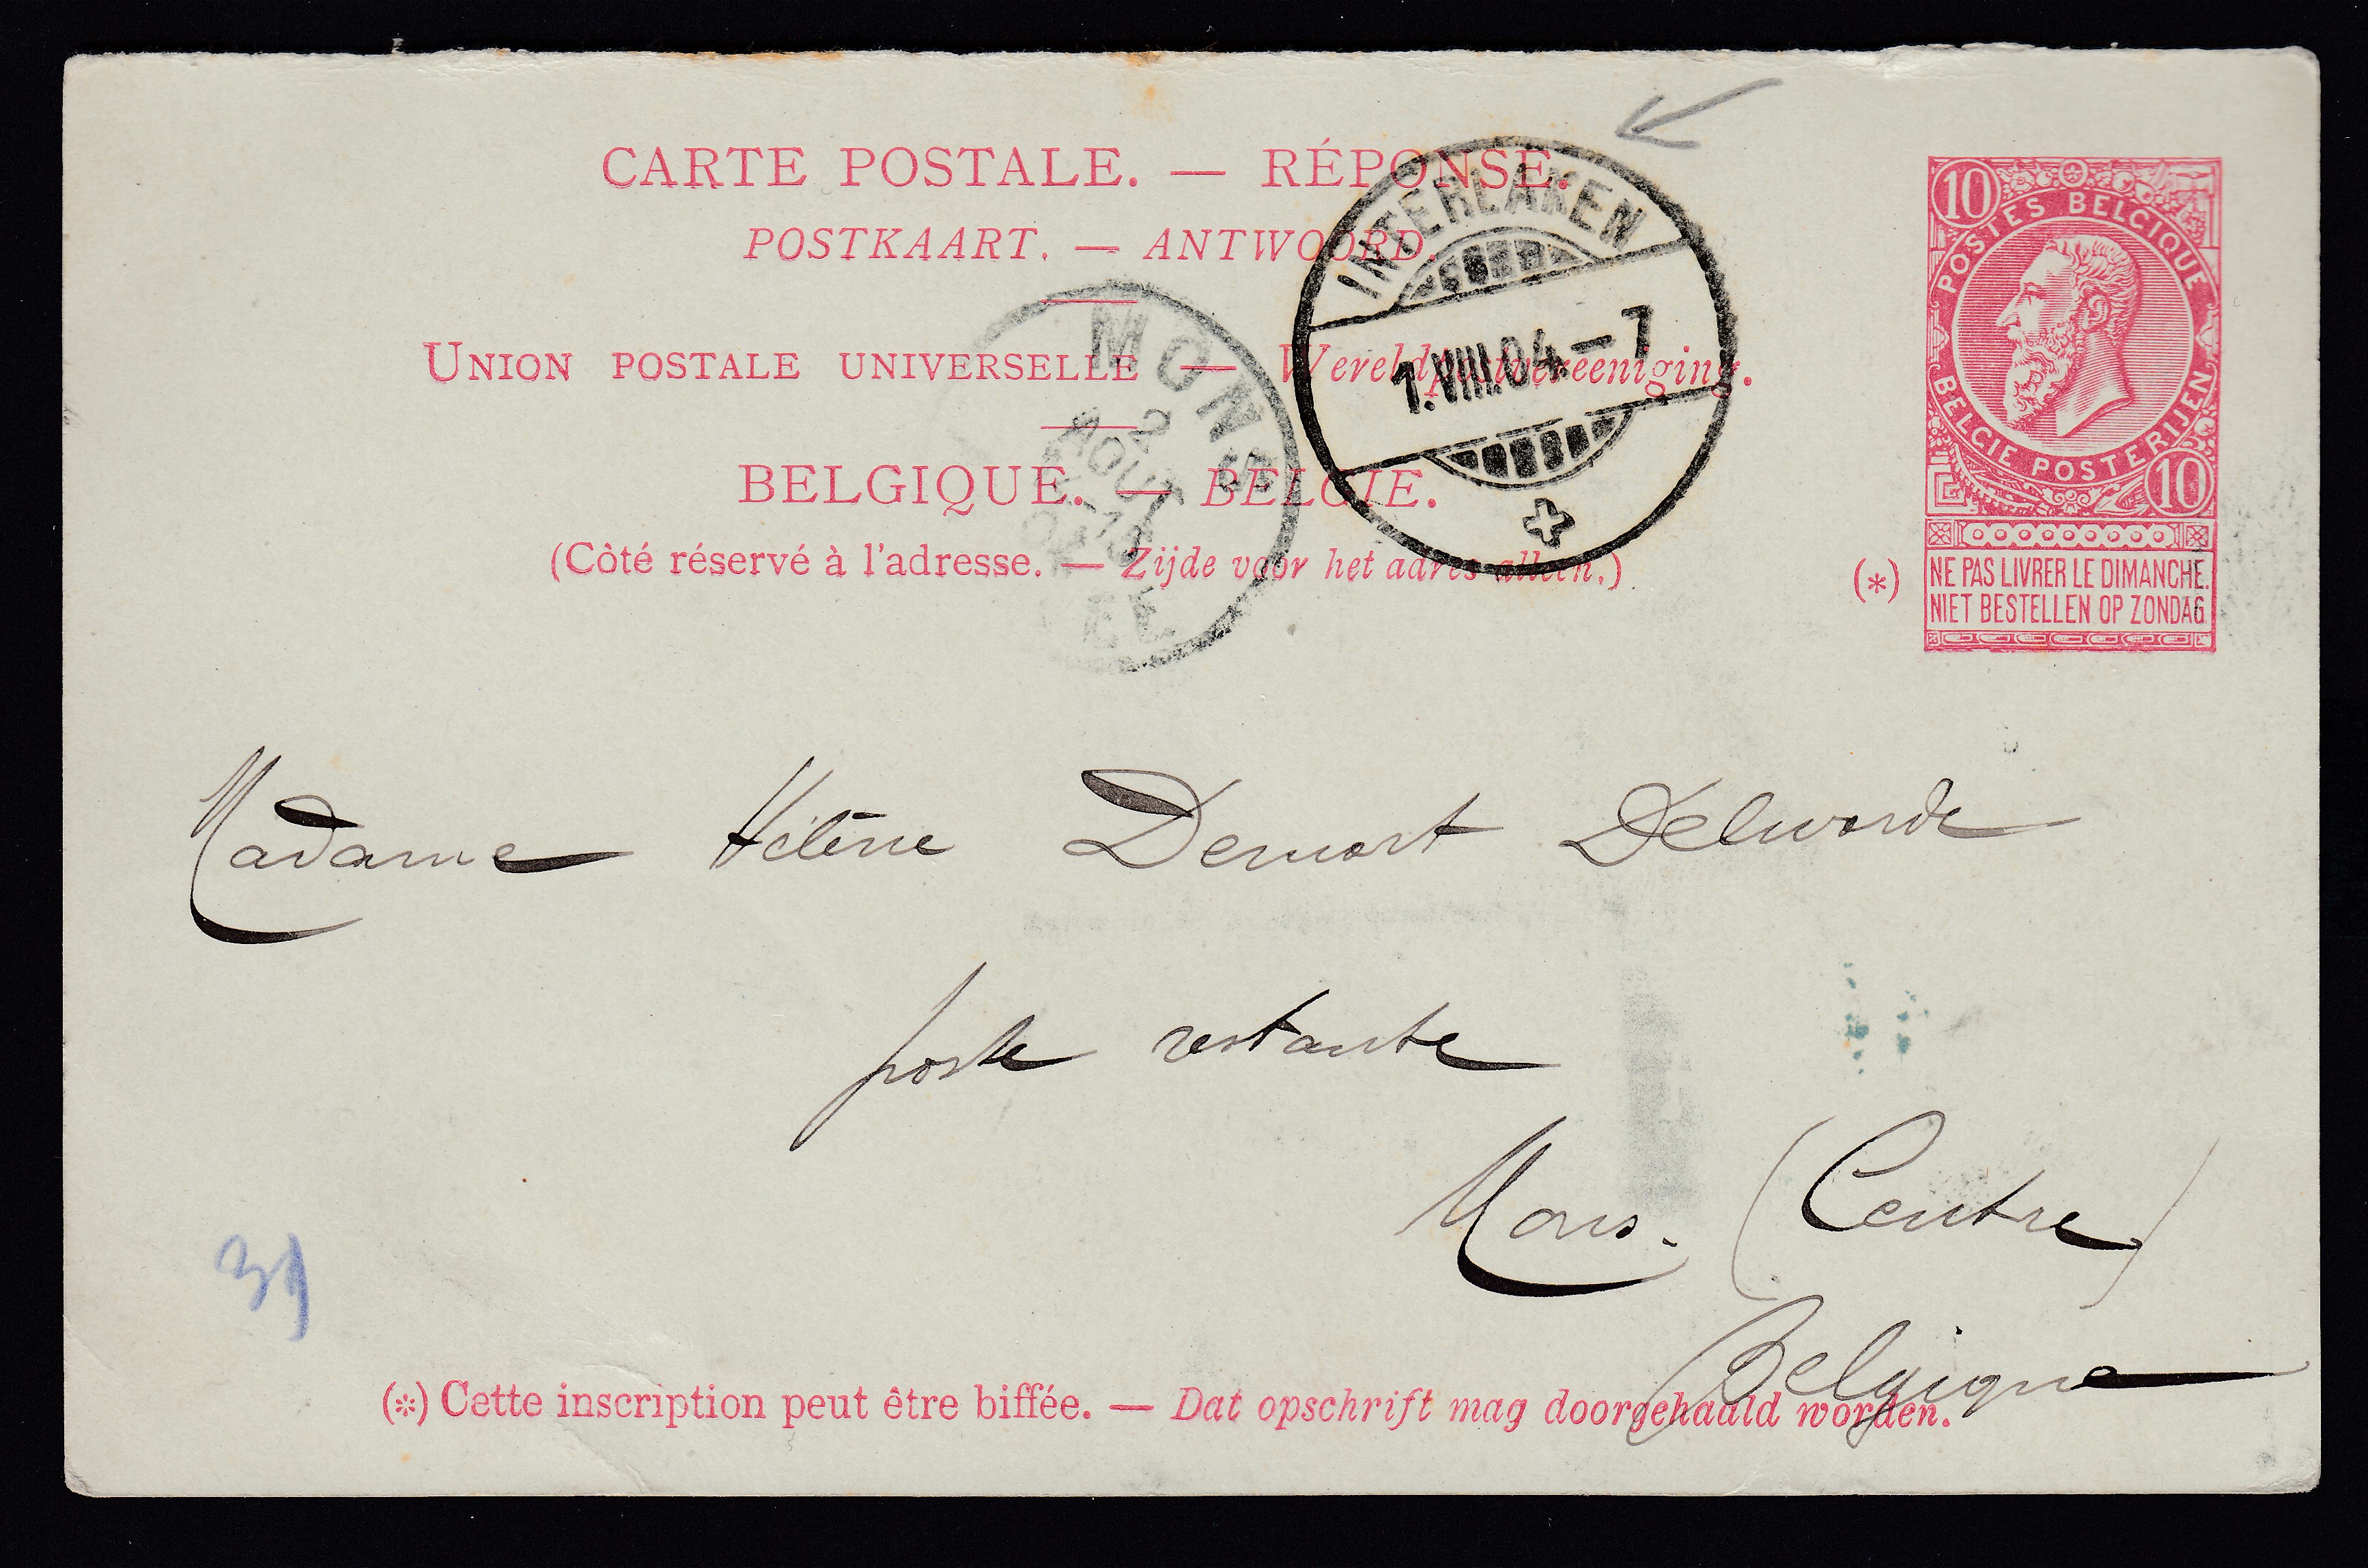 CARTE POSTALE. — RÉPONSE.
POSTKAART. — ANTWOORD.
UNION POSTALE UNIVERSELLE — Wereldpostvereeniging.
BELGIQUE. — BELGIE.
(Côté réservé à l'adresse. — Zijde voor het adres alleen.)
INTERLAKEN
1.VIII.04–7
MONS
2
AOUT
10
POSTES BELGIQUE
BELGIE POSTERIJEN
10
10
(*)
NE PAS LIVRER LE DIMANCHE.
NIET BESTELLEN OP ZONDAG
Madame Hélène
poste restante
Mons. (Centre)
Belgique
39
(*) Cette inscription peut être biffée. — Dat opschrift mag doorgehaald worden.